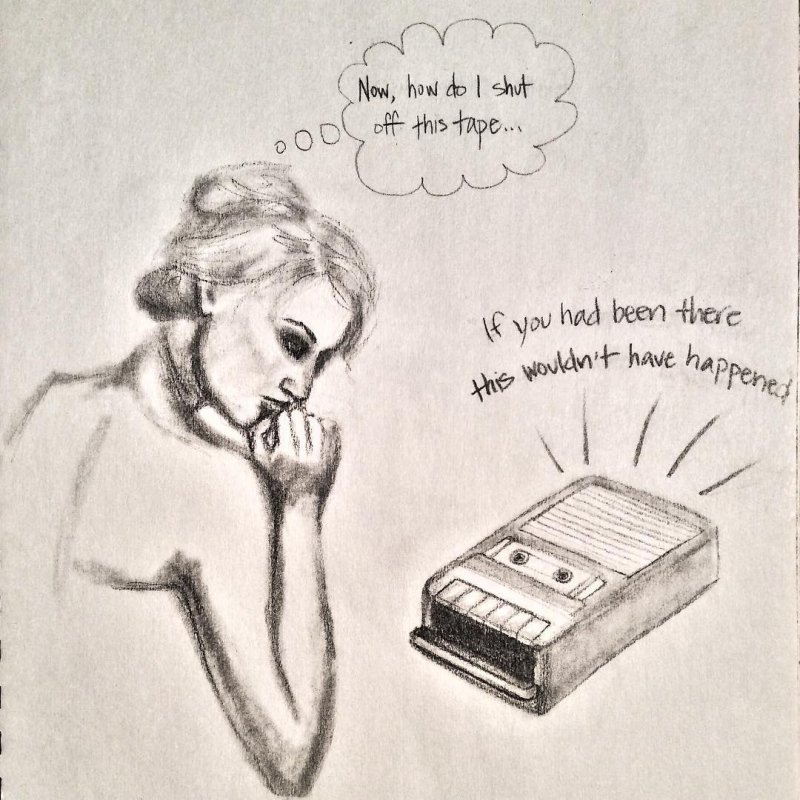 Now, how do I shut
off this tape...
If you had been there
this wouldn't have happened